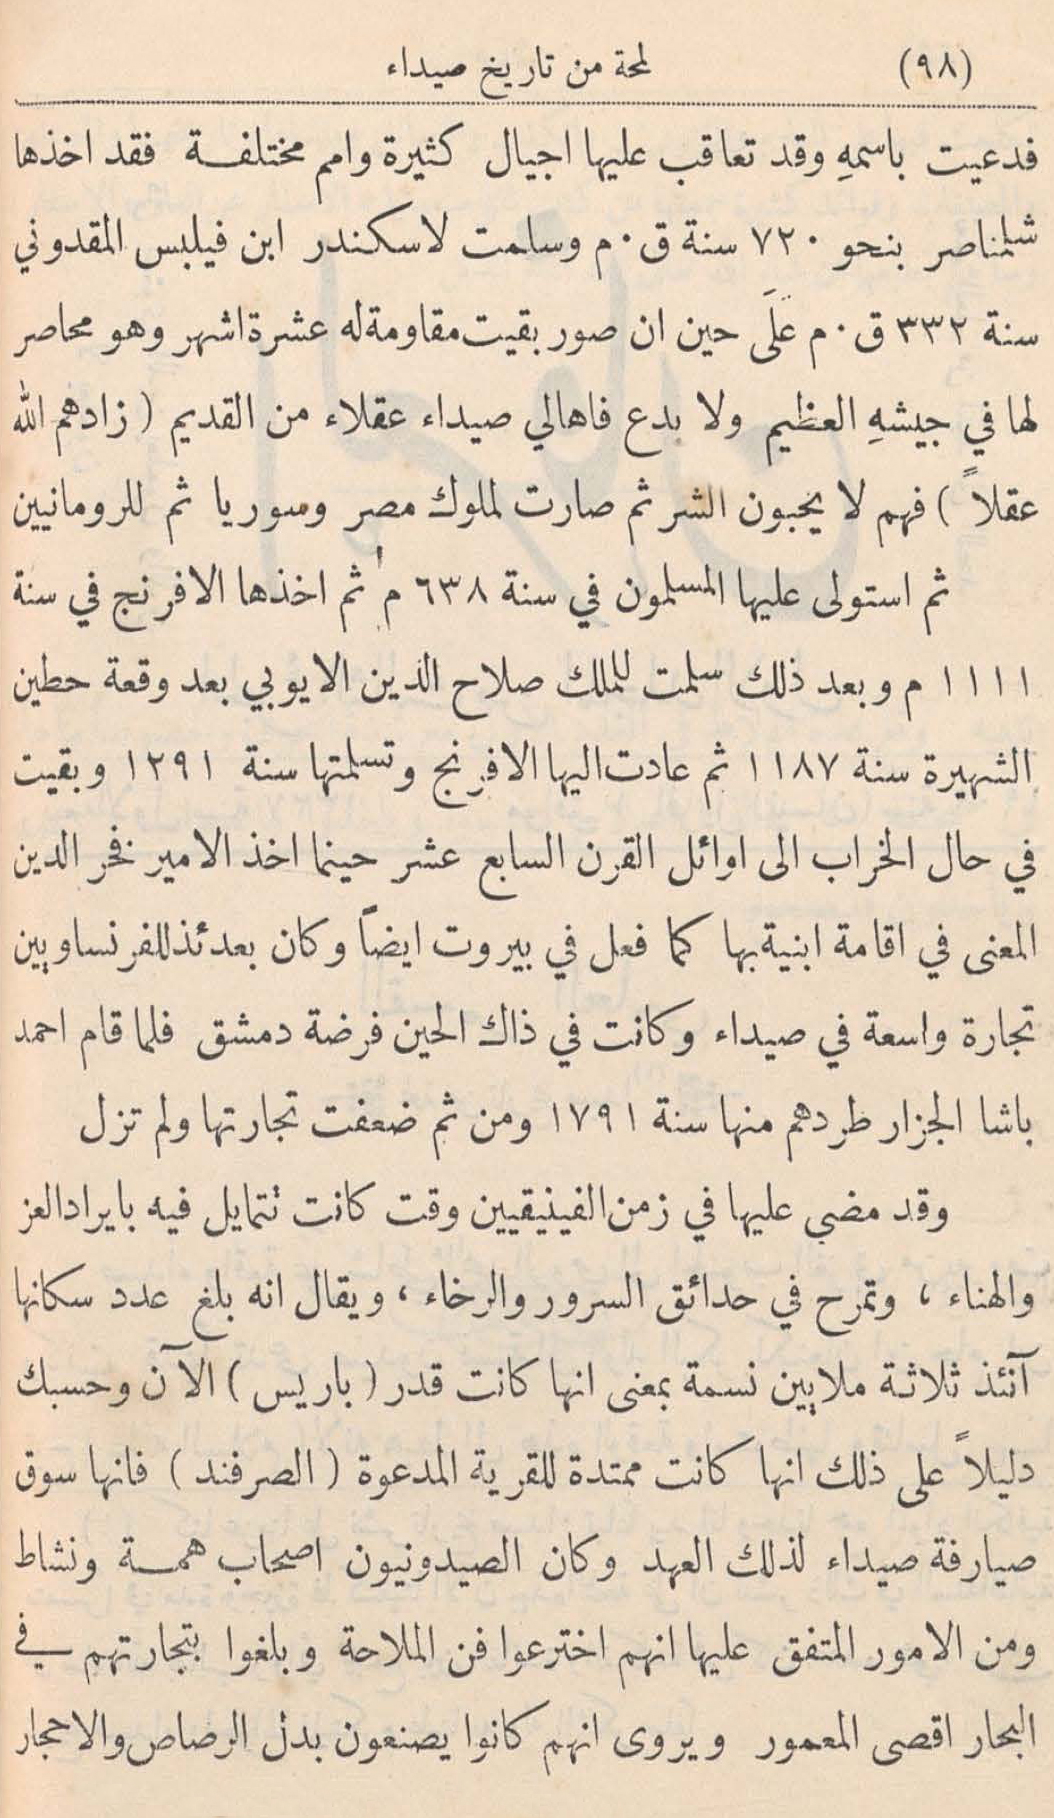 (٩٨) لمحة من تاريخ صيداء
فدعيت باسمهِ وقد تعاقب عليها اجيال كثيرة وامم مختلفة فقد اخذها
شلمناصر بنحو ٧٢٠ سنة ق٠م وسلمت لاسكندر ابن فيلبس المقدوني
سنة ٣٣٢ ق٠م عَلَى حين ان صور بقيت مقاومة له عشرة اشهر وهو محاصر
لها في جيشهِ العظيم ولا بدع فاهالي صيداء عقلاء من القديم (زادهم الله
عقلاً) فهم لا يحبون الشر ثم صارت لملوك مصر وسوريا ثم للرومانيين
ثم استولى عليها المسلمون في سنة ٦٣٨ م ثم اخذها الافرنج في سنة
١١١١ م وبعد ذلك سلمت للملك صلاح الدين الايوبي بعد وقعة حطين
الشهيرة سنة ١١٨٧ ثم عادت اليها الافرنج وتسلمتها سنة ١٢٩١ وبقيت
في حال الخراب الى اوائل القرن السابع عشر حينما اخذ الامير فخر الدين
المعنى في اقامة ابنية بها كما فعل في بيروت ايضاً وكان بعدئذ للفرنساويين
تجارة واسعة في صيداء وكانت في ذاك الحين فرضة دمشق فلما قام احمد
باشا الجزار طردهم منها سنة ١٧٩١ ومن ثم ضعفت تجارتها ولم تزل
وقد مضى عليها في زمن الفينيقيين وقت كانت تتمايل فيه بايراد العز
والهناء ، وتمرح في حدائق السرور والرخاء ، ويقال انه بلغ عدد سكانها
آنئذ ثلاثة ملايين نسمة بمعنى انها كانت قدر (باريس) الآن وحسبك
دليلاً على ذلك انها كانت ممتدة للقرية المدعوة (الصرفند) فانها سوق
صيارفة صيداء لذلك العهد وكان الصيدونيون اصحاب همة ونشاط
ومن الامور المتفق عليها انهم اخترعوا فن الملاحة وبلغوا بتجارتهم في
البحار اقصى المعمور ويروى انهم كانوا يصنعون بدل الرصاص والاحجار